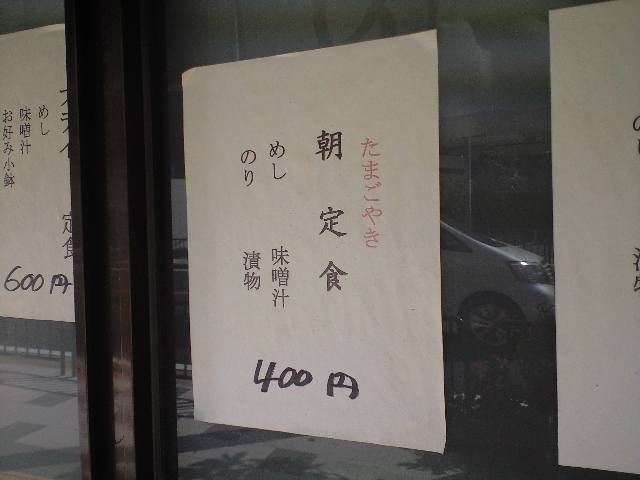 たまごやき
朝定食
めし 味噌汁
のり 漬物
400円
定食
めし
味噌汁
お好み小鉢
600円